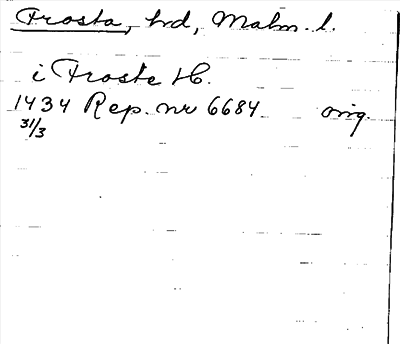 Frosta, hd, Malm. l.
i Froste H.
1434 Rep. nr 6684 orig.
31/3